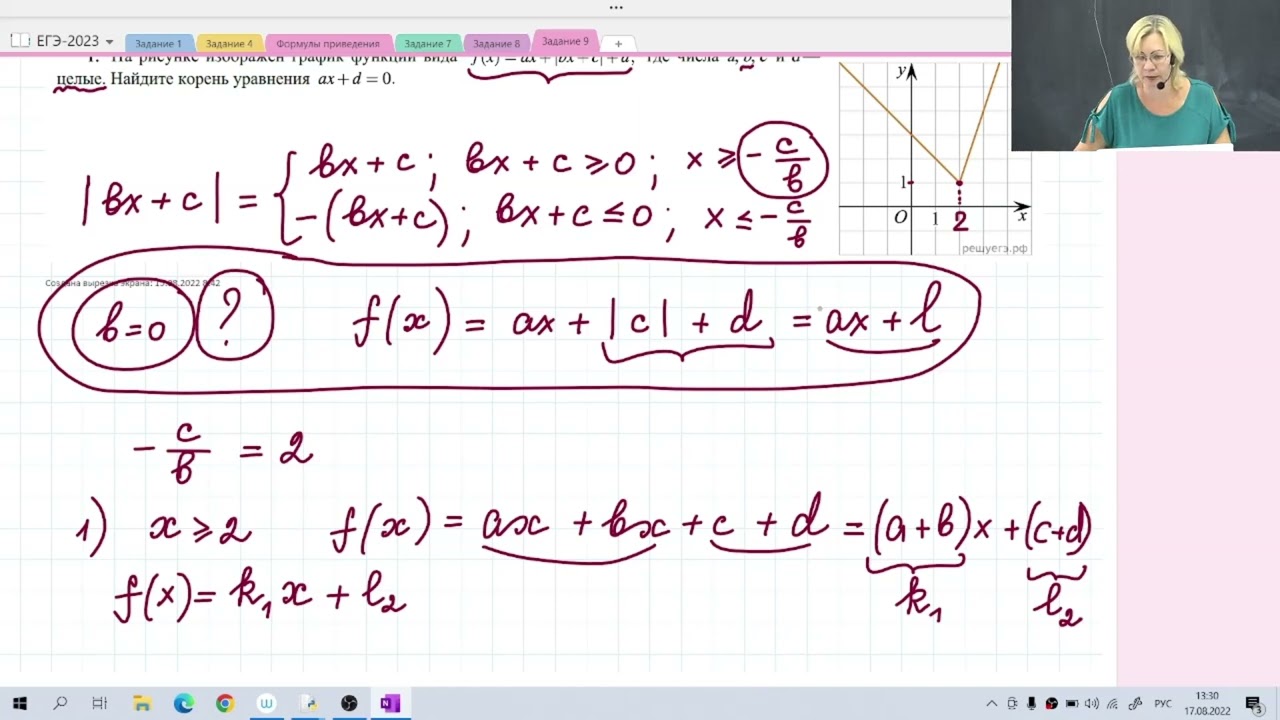 ЕГЭ-2023 Задание 1 Задание 4 Формулы приведения Задание 7 Задание 8 Задание 9 +
1. На рисунке изображён график функции вида f(x) = ax + |bx + c| + d, где числа a, b, c и d —
целые. Найдите корень уравнения ax + d = 0.
y
1
O 1 2 x
решуегэ.рф
|bx + c| = { bx + c ; bx + c ⩾ 0 ; x ⩾ - c/b
-(bx+c) ; bx + c ≤ 0 ; x ≤ - c/b
b=0 ? f(x) = ax + |c| + d = ax + l
- c/b = 2
1) x ⩾ 2 f(x) = ax + bx + c + d = (a+b)x + (c+d)
f(x) = k₁x + l₂ k₁ l₂
РУС 13:30
17.08.2022 3